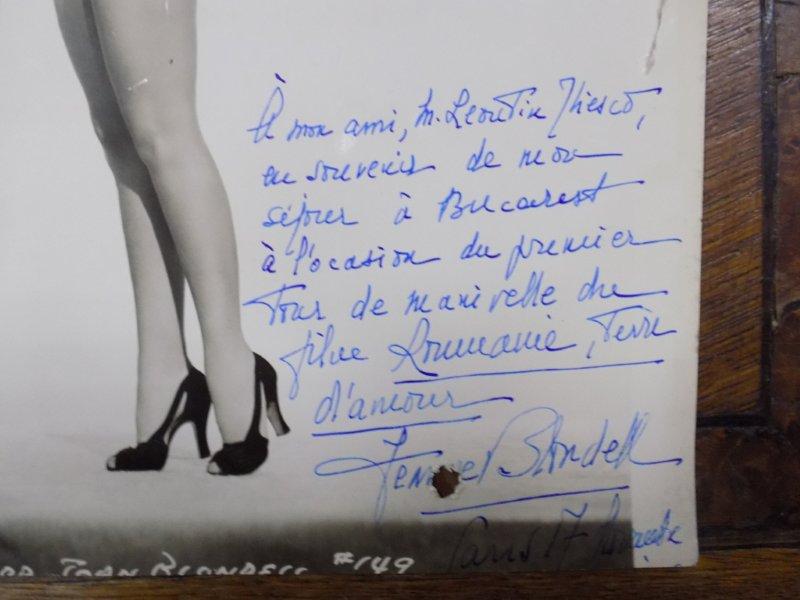 À mon ami, M. Leontin Iliesco,
en souvenir de mon
séjour à Bucarest
à l'ocasion du premier
Tour de manivelle du
film Roumanie, Terre
d'amour
Blondell
Paris 17
JOAN BLONDELL #149